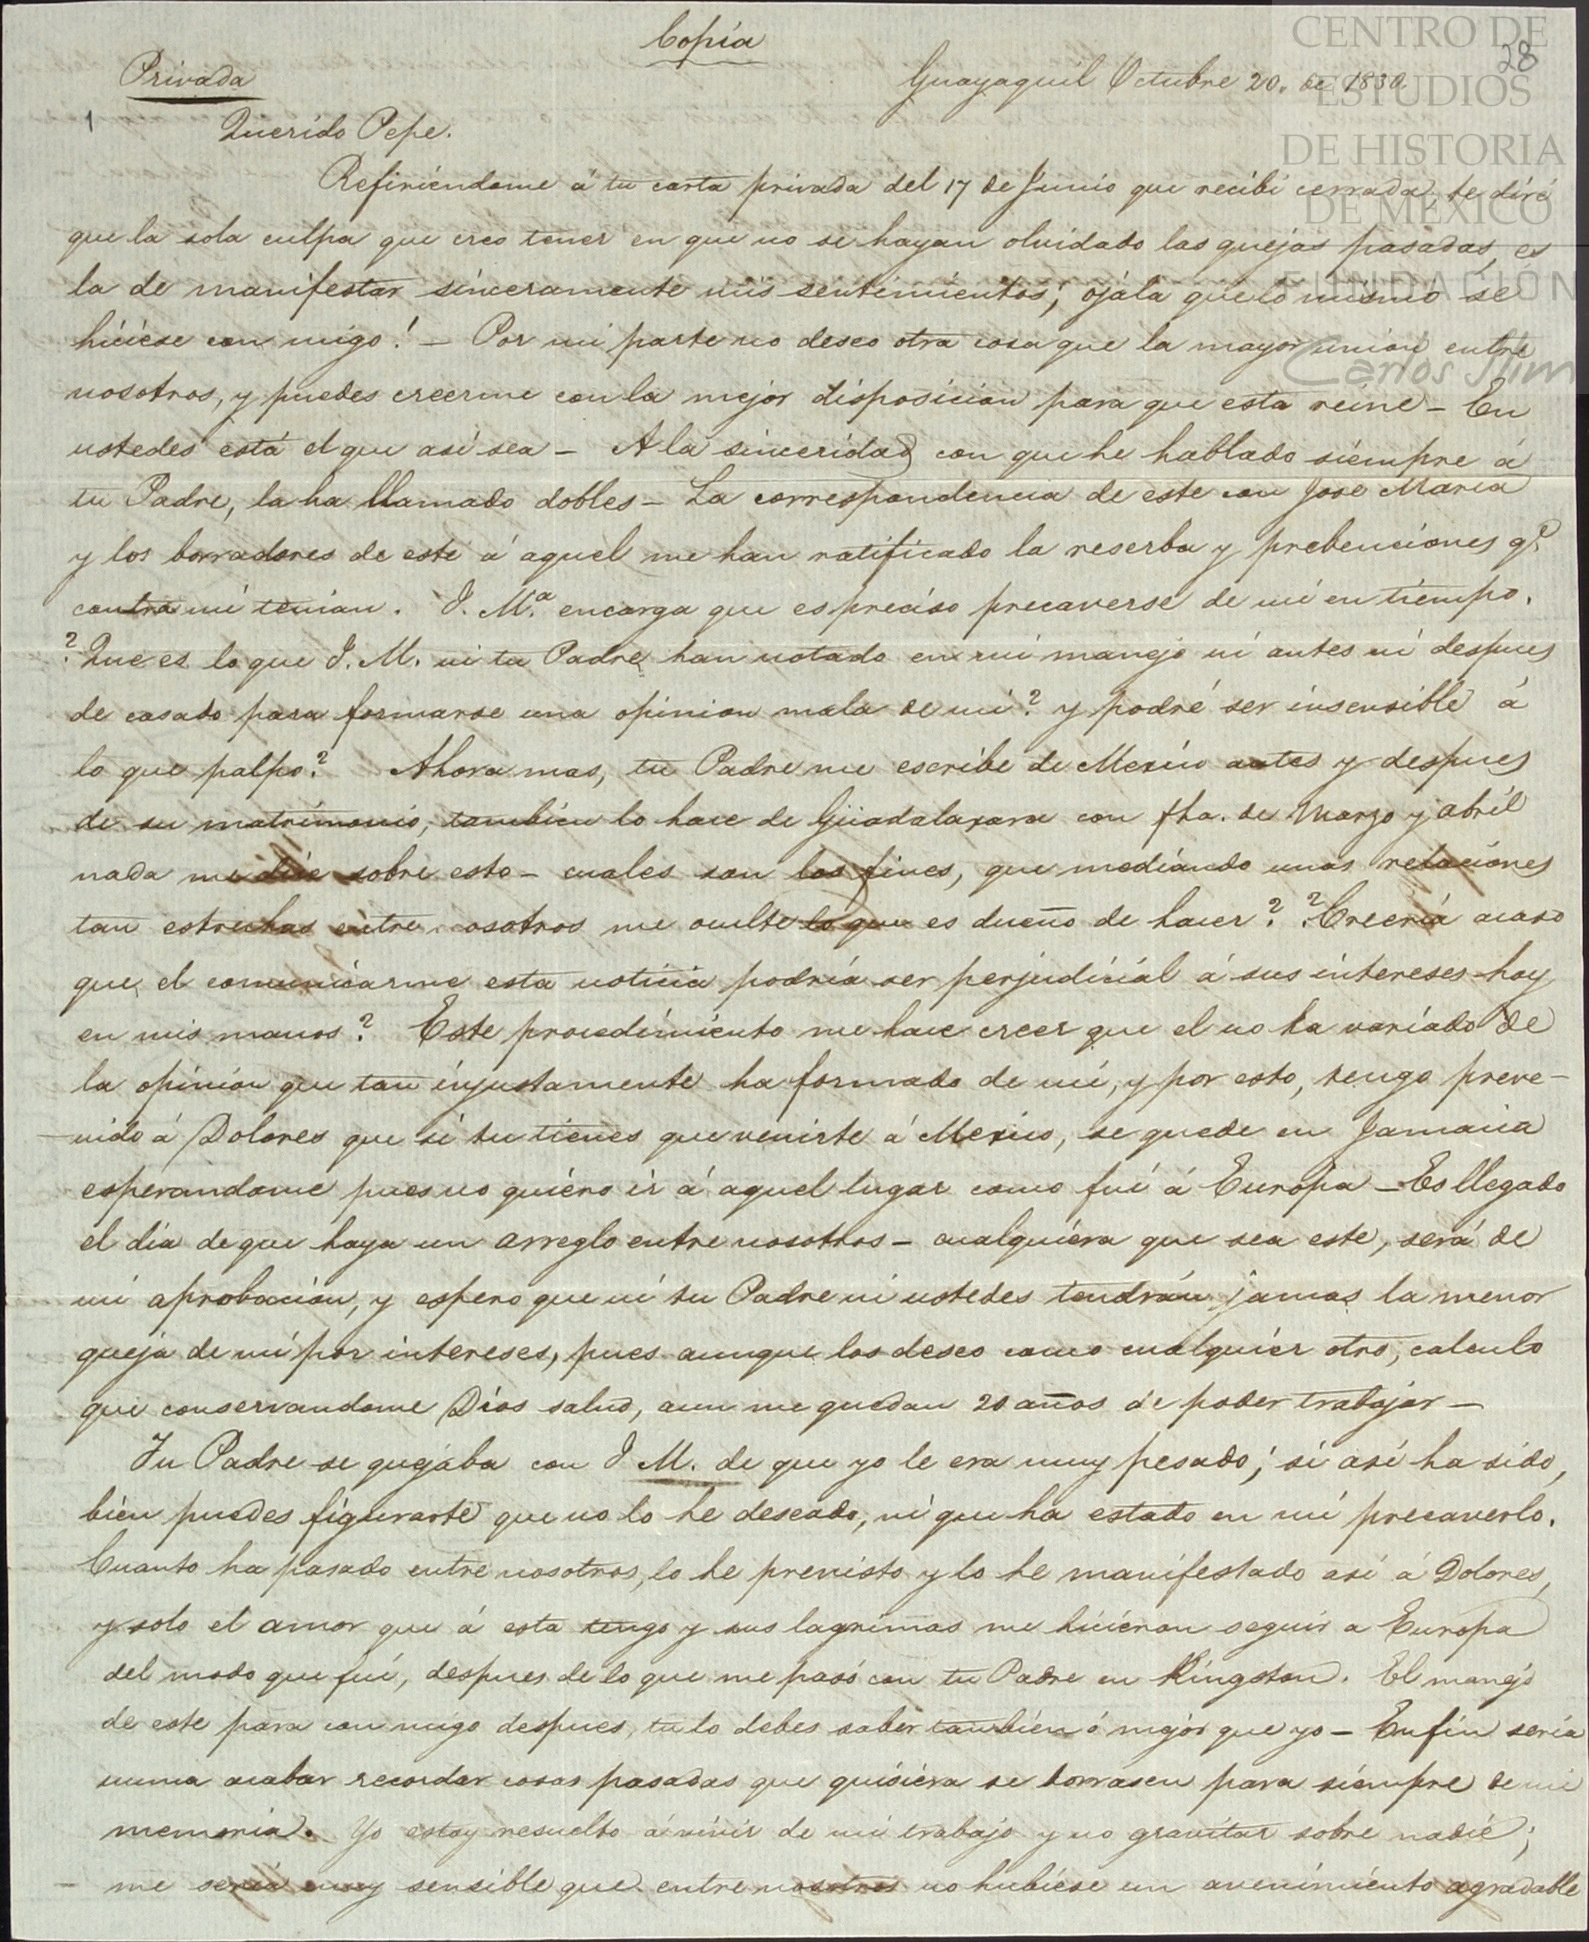 Copia
28
Privada
Guayaquil Octubre 20. de 1830.
1
Querido Pepe.
Refiriéndome á tu carta privada del 17 de Junio que recibí cerrada, te diré
que la sola culpa que creo tener en que no se hayan olvidado las quejas pasadas, es
la de manifestar sinceramente mis sentimientos; ojála que lo mismo se
hiciese con migo! – Por mi parte no deseo otra cosa que la mayor union entre
nosotros, y puedes creerme con la mejor disposicion para que esta reine – En
ustedes está el que asi sea – A la sinceridad con que he hablado siempre á
tu Padre, la ha llamado dobles – La correspondencia de este con José Maria
y los borradores de este á aquel me han ratificado la reserba y prebenciones qe.
contra mi tenian. J. Ma. encarga que es preciso precaverse de mi en tiempo.
? Que es lo que J. M. ni tu Padre han notado en mi manejo ni antes ni despues
de casado para formarse una opinion mala de mi? y podré ser insensible á
lo que palpo? Ahora mas, tu Padre me escribe de Mexico antes y despues
de su matrimonio, tambien lo hace de Guadalaxara con fha. de Marzo y Abril
nada me dice sobre esto – cuales son los fines, que mediando unas relaciones
tan estrechas entre nosotros me oculte lo que es dueño de hacer? ? Creeria acaso
que el comunicarme esta noticia podria ser perjudicial á sus intereses hoy
en mis manos? Este procedimiento me hace creer que el no ha variado de
la opinion que tan injustamente ha formado de mi, y por esto, tengo preve-
nido á Dolores que si tu tienes que venirte á Mexico, se quede en Jamaica
esperandome pues no quiero ir á aquel lugar como fui á Europa – Es llegado
el dia de que haya un arreglo entre nosotros – cualquiera que sea este, será de
mi aprobacion, y espero que ni tu Padre ni ustedes tendrán jamas la menor
queja de mi por intereses, pues aunque los deseo como cualquier otro, calculo
que conservandome Dios salud, aun me quedan 20 años de poder trabajar –
Tu Padre se quejaba con J. M. de que yo le era muy pesado; si asi ha sido,
bien puedes figurarte que no lo he deseado, ni que ha estado en mi precaverlo.
Cuanto ha pasado entre nosotros, lo he previsto y lo he manifestado asi á Dolores,
y solo el amor que á esta tengo y sus lagrimas me hicieron seguir a Europa
del modo que fui, despues de lo que me pasó con tu Padre en Kingston. El manejo
de este para con migo despues, tu lo debes saber tambien ó mejor que yo – En fin seria
nunca acabar recordar cosas pasadas que quisiera se borrasen para siempre de mi
memoria. Yo estoy resuelto á vivir de mi trabajo y no gravitar sobre nadie;
me seria muy sensible que entre nosotros no hubiese un avenimiento agradable
CENTRO DE
ESTUDIOS
DE HISTORIA
DE MÉXICO
FUNDACIÓN
Carlos Slim